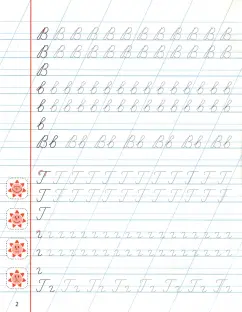 В В В В В В В В В В В
В В В В В В В В В В В
В
в в в в в в в в в в в в в в в
в в в в в в в в в в в в в в в
в
Вв Вв Вв Вв Вв Вв
Г Г Г Г Г Г Г Г Г Г Г
Г Г Г Г Г Г Г Г Г Г Г
Г
г г г г г г г г г г г г г г г г
г г г г г г г г г г г г г г г г
г
Гг Гг Гг Гг Гг Гг Гг
2